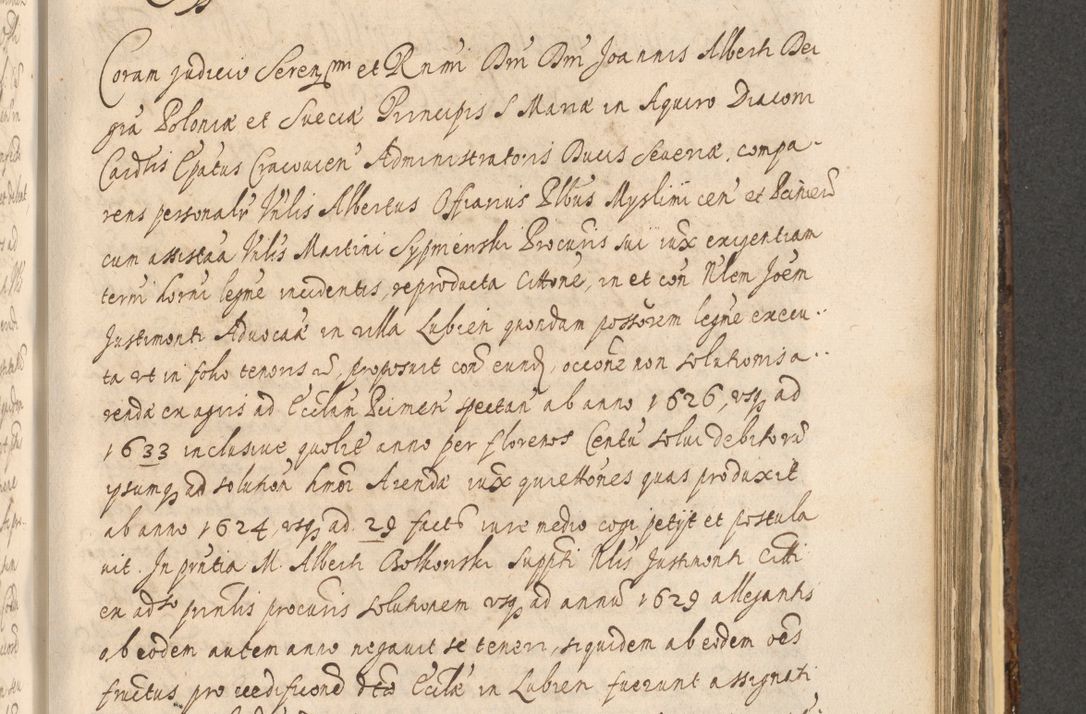 Coram judicio Sereni^mi et Rn̄mi Dn̄i Dn̄i Joannis Alberti Dei
gr̄a Poloniæ et Sueciæ Principis S Mariæ in Aquiro Diaconi
Cardlis Ep̄atus Cracovien̄ Administratoris Ducis Severiæ, compa-
rens personalr̄ Vnlis Albertus Offiarius Pl̄bus Myslimicen̄ et Pcimen̄
cum assistā̄a Vnlis Martini Sypnienski Procur̄is sui iux̄ exigentiam
termi hor̄ni legm̄e incidentis, reproducta Citt̄one, in et con̄ Nblem Joēm
Justimonti Advocatiæ in villa Lubien quondam possōrem legm̄e execu-
ta vt in folio tenoris r̄, proposuit con̄ eund̄, occōne non solutionis a-
rendæ ex agris ad Ecclā̄m Pcimen̄ spectan̄ ab anno 1626, vsq̨ ad
1633 inclusive quolit̄ anno per florenos Centū solui debitorū
ipsumq̨ ad solution̄ hmōi Arendæ iux̄ quiett̄ones quas produxit
ab anno 1624, vsq̨ ad 29 factō iure medio cogi petijt et postula
uit. In pr̄ntia M. Alberti Bolkonski Suppt̄i Nblis Justimonti Citt̄i
ex ad^so prin̄lis procuris solutionem vsq̨ ad annū 1629 allegantis
ab eodem autem anno negauit se teneri, siquidem ab eodem oēs
fructus pro reedificiōne dtæ Ecclæ in Lubien fuerunt assignati